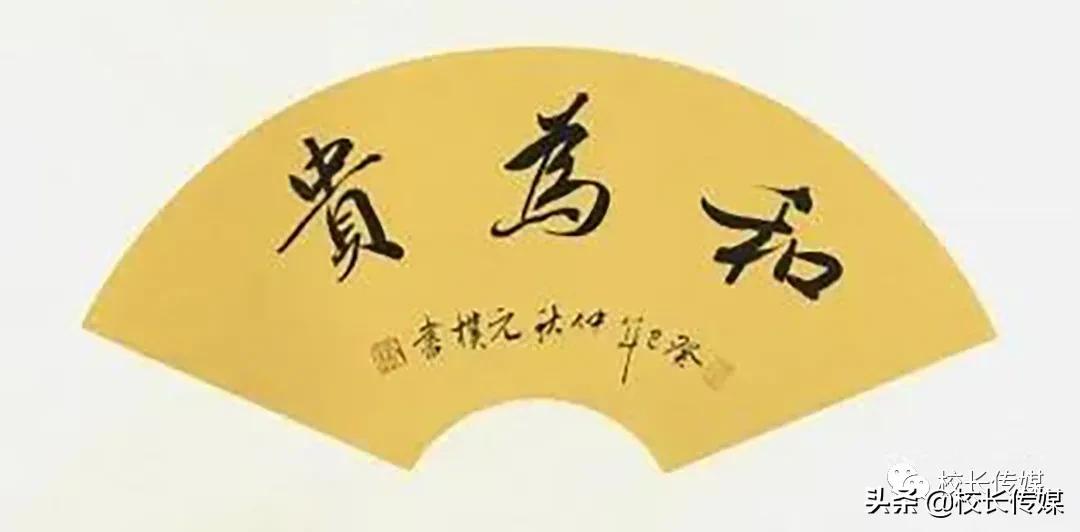 和為貴
癸巳年仲秋元樸書
校长传媒
头条 @校长传媒